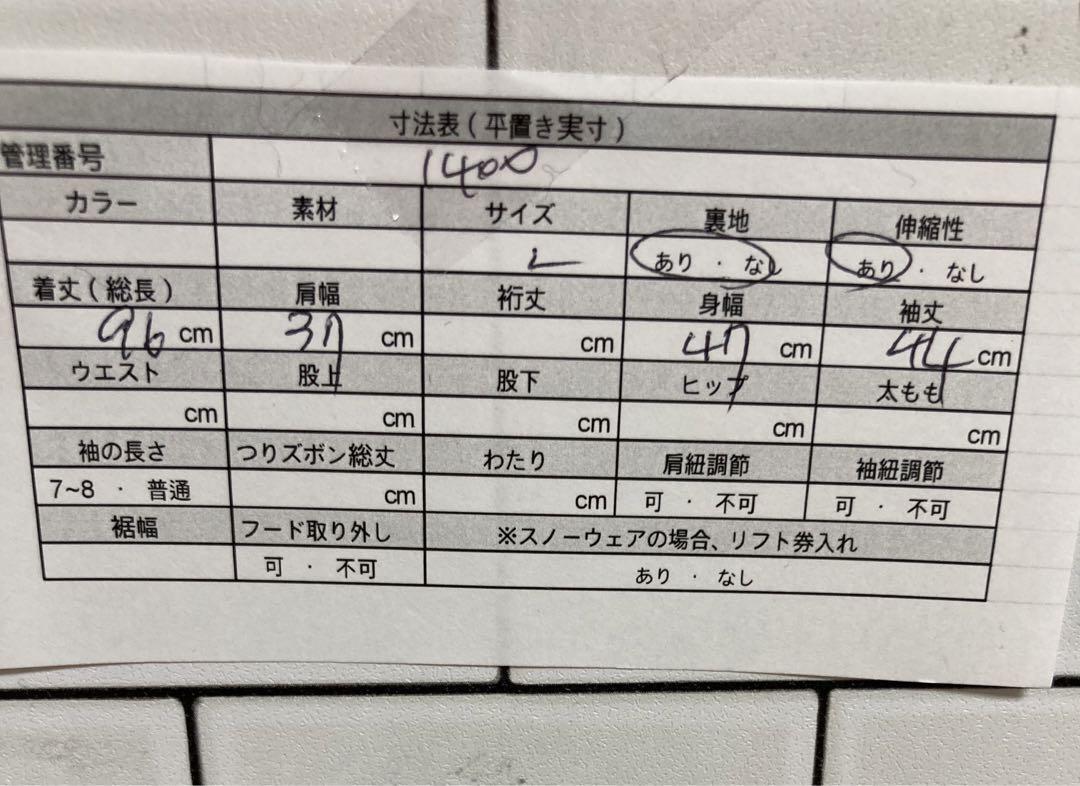 寸法表(平置き実寸)
管理番号 1400
カラー 素材 サイズ 裏地 伸縮性
L あり・なし あり・なし
着丈(総長) 肩幅 裄丈 身幅 袖丈
96 cm 37 cm cm 47 cm 44 cm
ウエスト 股上 股下 ヒップ 太もも
cm cm cm cm cm
袖の長さ つりズボン総丈 わたり 肩紐調節 袖紐調節
7~8・普通 cm cm 可・不可 可・不可
裾幅 フード取り外し ※スノーウェアの場合、リフト券入れ
可・不可 あり・なし